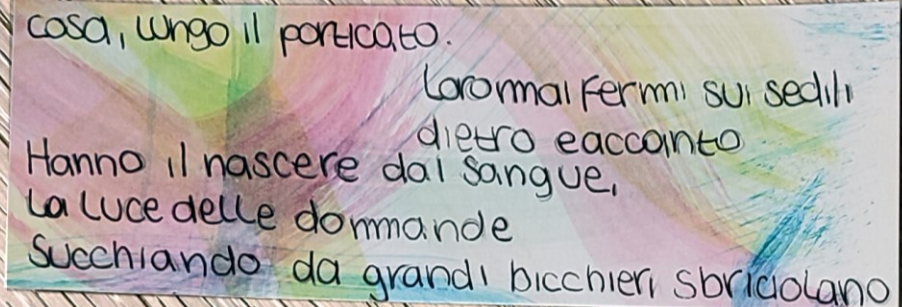 cosa, lungo il porticato.
Loro mai fermi sui sedili
dietro e accanto
Hanno il nascere dal sangue,
La luce delle dommande
Succhiando da grandi bicchieri sbriciolano